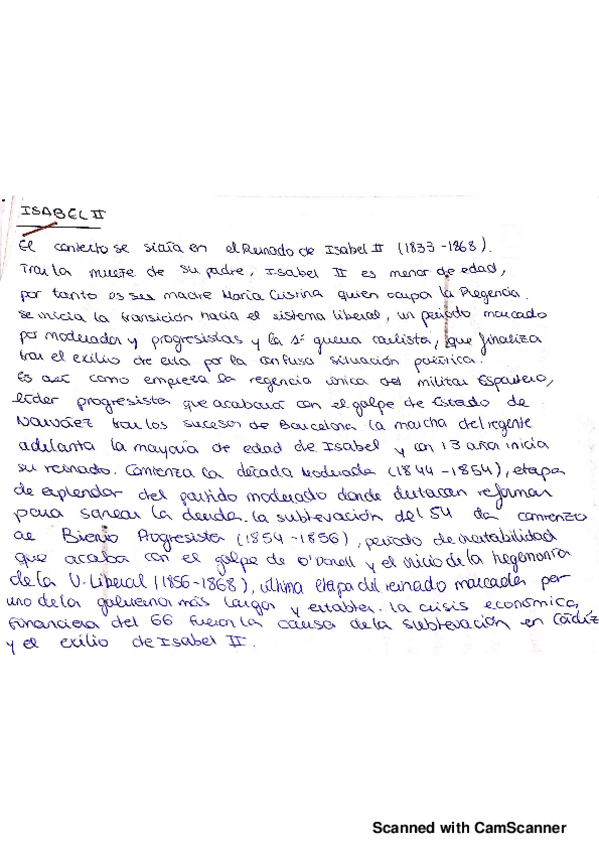 ISABEL II
El contexto se sitúa en el Reinado de Isabel II (1833-1868).
Tras la muerte de su padre, Isabel II es menor de edad,
por tanto es su madre María Cristina quien ocupa la Regencia.
Se inicia la transición hacia el sistema liberal, un periodo marcado
por moderados y progresistas y la 1ª guerra carlista, que finaliza
tras el exilio de esta por la confusa situación política.
Es así como empieza la regencia única del militar Espartero,
líder progresista que acabará con el golpe de Estado de
Narváez tras los sucesos de Barcelona la marcha del regente
adelanta la mayoría de edad de Isabel y con 13 años inicia
su reinado. Comienza la década Moderada (1844-1854), etapa
de esplendor del partido moderado donde destacan reformas
para sanear la deuda. la sublevación del 54 da comienzo
al Bienio Progresista (1854-1856), periodo de inestabilidad
que acaba con el golpe de O'Donell y el inicio de la hegemonía
de la U. Liberal (1856-1868), última etapa del reinado marcada por
uno de los gobiernos más largos y estables. la crisis económica,
financiera del 66 fueron la causa de la sublevación en Cádiz
y el exilio de Isabel II.
Scanned with CamScanner